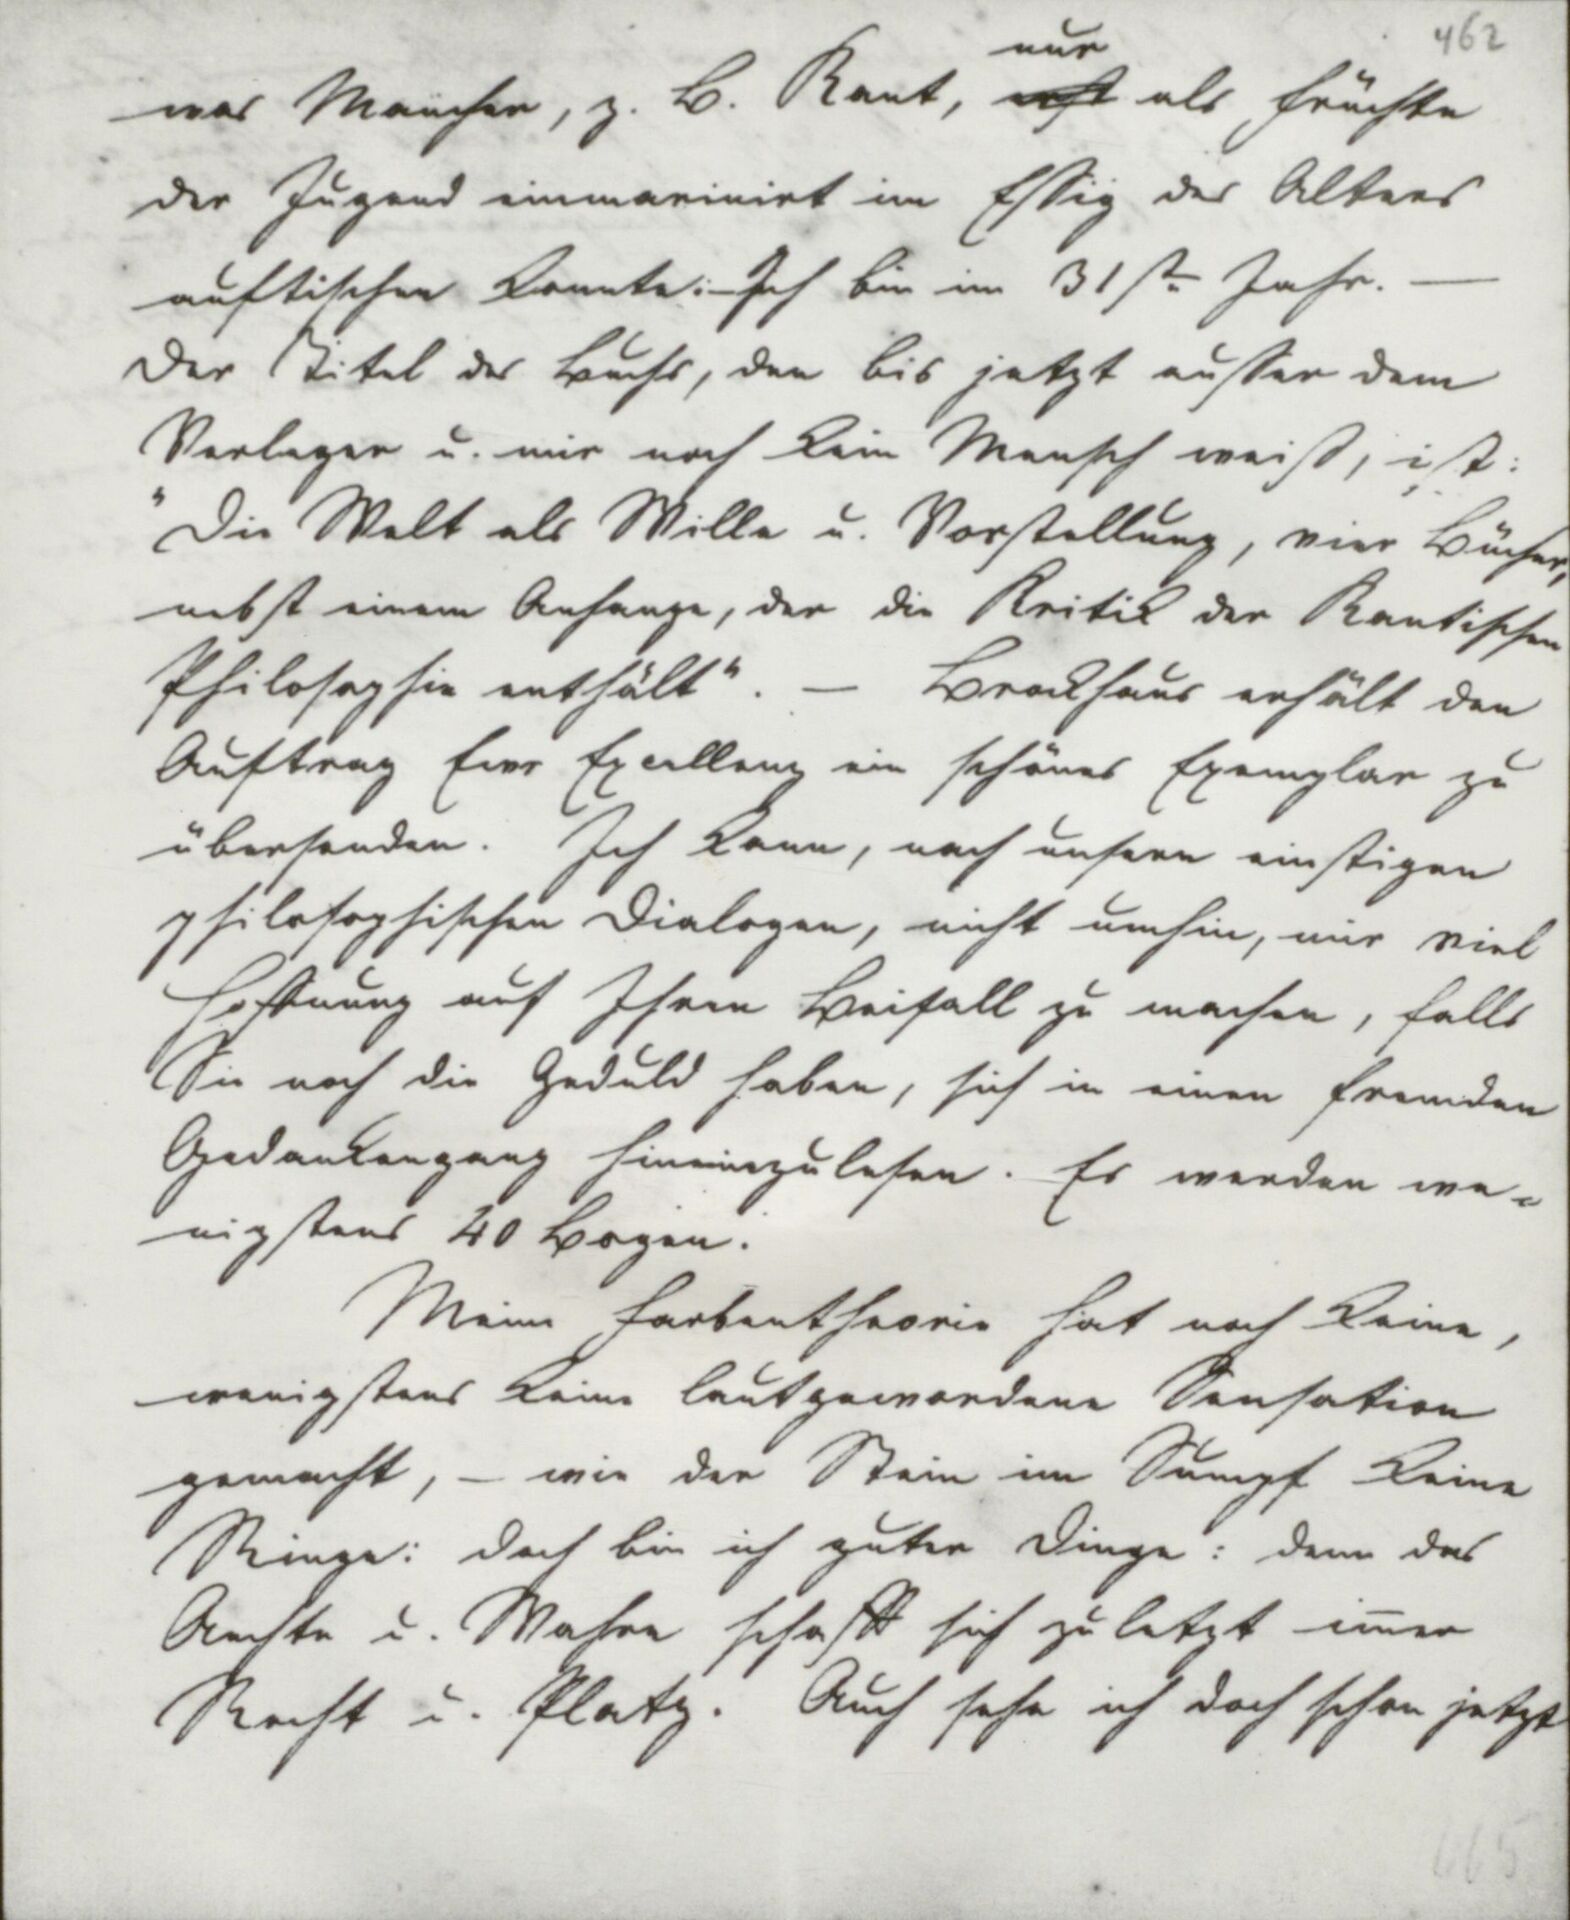 462
nur
was Mancher, z. B. Kant, erst als Früchte
der Jugend einmarinirt im Essig des Alters
auftischen konnte: – Ich bin im 31ste Jahr. —
Der Titel des Buchs, den bis jetzt ausser dem
Verleger u. mir noch kein Mensch weiß, ist:
"Die Welt als Wille u. Vorstellung, vier Bücher,
nebst einem Anhange, der die Kritik der Kantischen
Philosophie enthält". — Brockhaus erhält den
Auftrag Ewr Excellenz ein schönes Exemplar zu
übersenden. Ich kann, nach unsern einstigen
philosophischen Dialogen, nicht umhin, mir viel
Hoffnung auf Ihren Beifall zu machen, falls
Sie noch die Geduld haben, sich in einen fremden
Gedankengang hineinzulesen. Es werden we-
nigstens 40 Bogen.
Meine Farbentheorie hat noch keine,
wenigstens keine lautgewordene Sensation
gemacht, – wie der Stein im Sumpf keine
Ringe: doch bin ich guter Dinge: denn das
Aechte u. Wahre schafft sich zuletzt im̅er
Recht u. Platz. Auch sehe ich doch schon jetzt
465